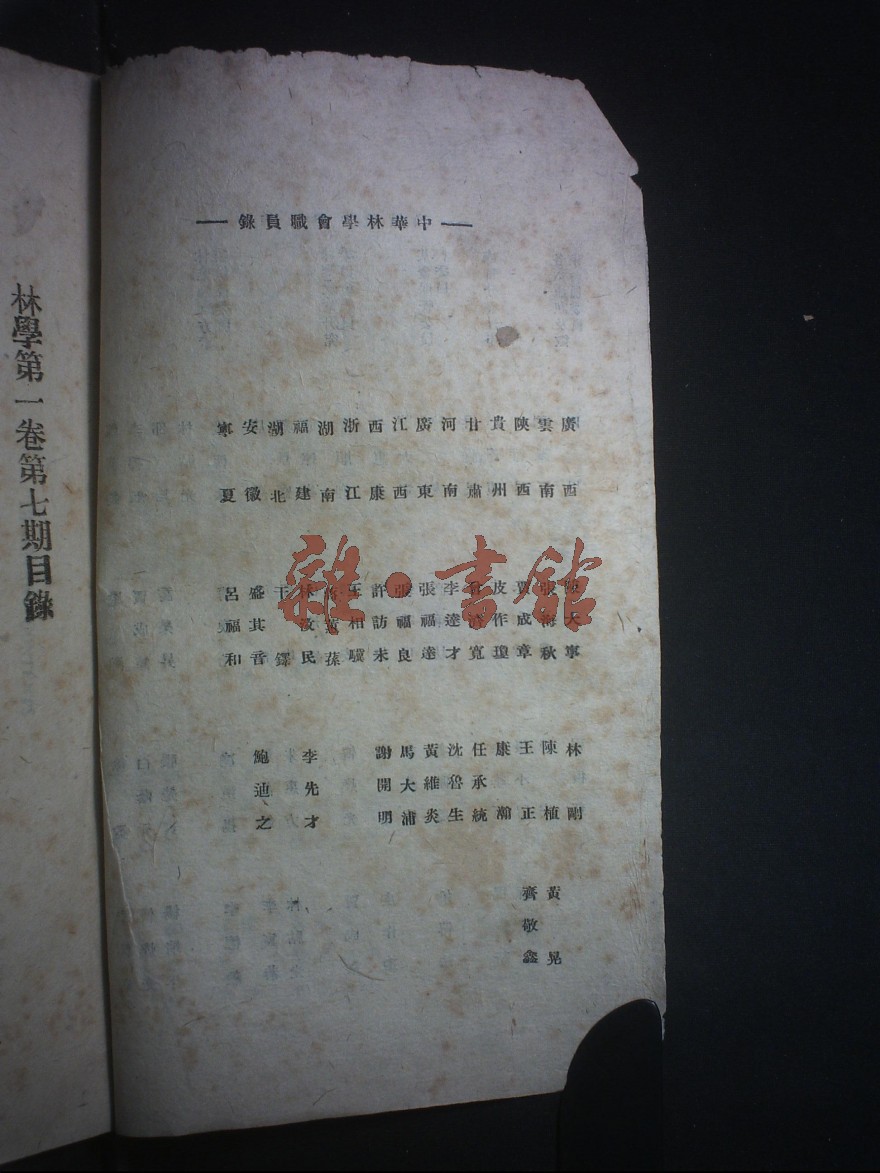 中華林學會職員錄
廣西 陳大寧 林剛
雲南 張海秋 陳植 黃晃
陝西 賈成章 王正 齊敬鑫
貴州 皮作瓊 康瀚
甘肅 濟寬 任承統
河南 李達才 沈魯生
廣東 張福達 黃維炎
江西 張福良 馬大浦
西康 許訪未 謝開明
浙江 王相驥
湖南 黃蓀
福建 林汶民 李先才
湖北 干鐸
安徽 盛其音 鮑迪之
寧夏 呂福和
林學第一卷第七期目錄
雜·書館